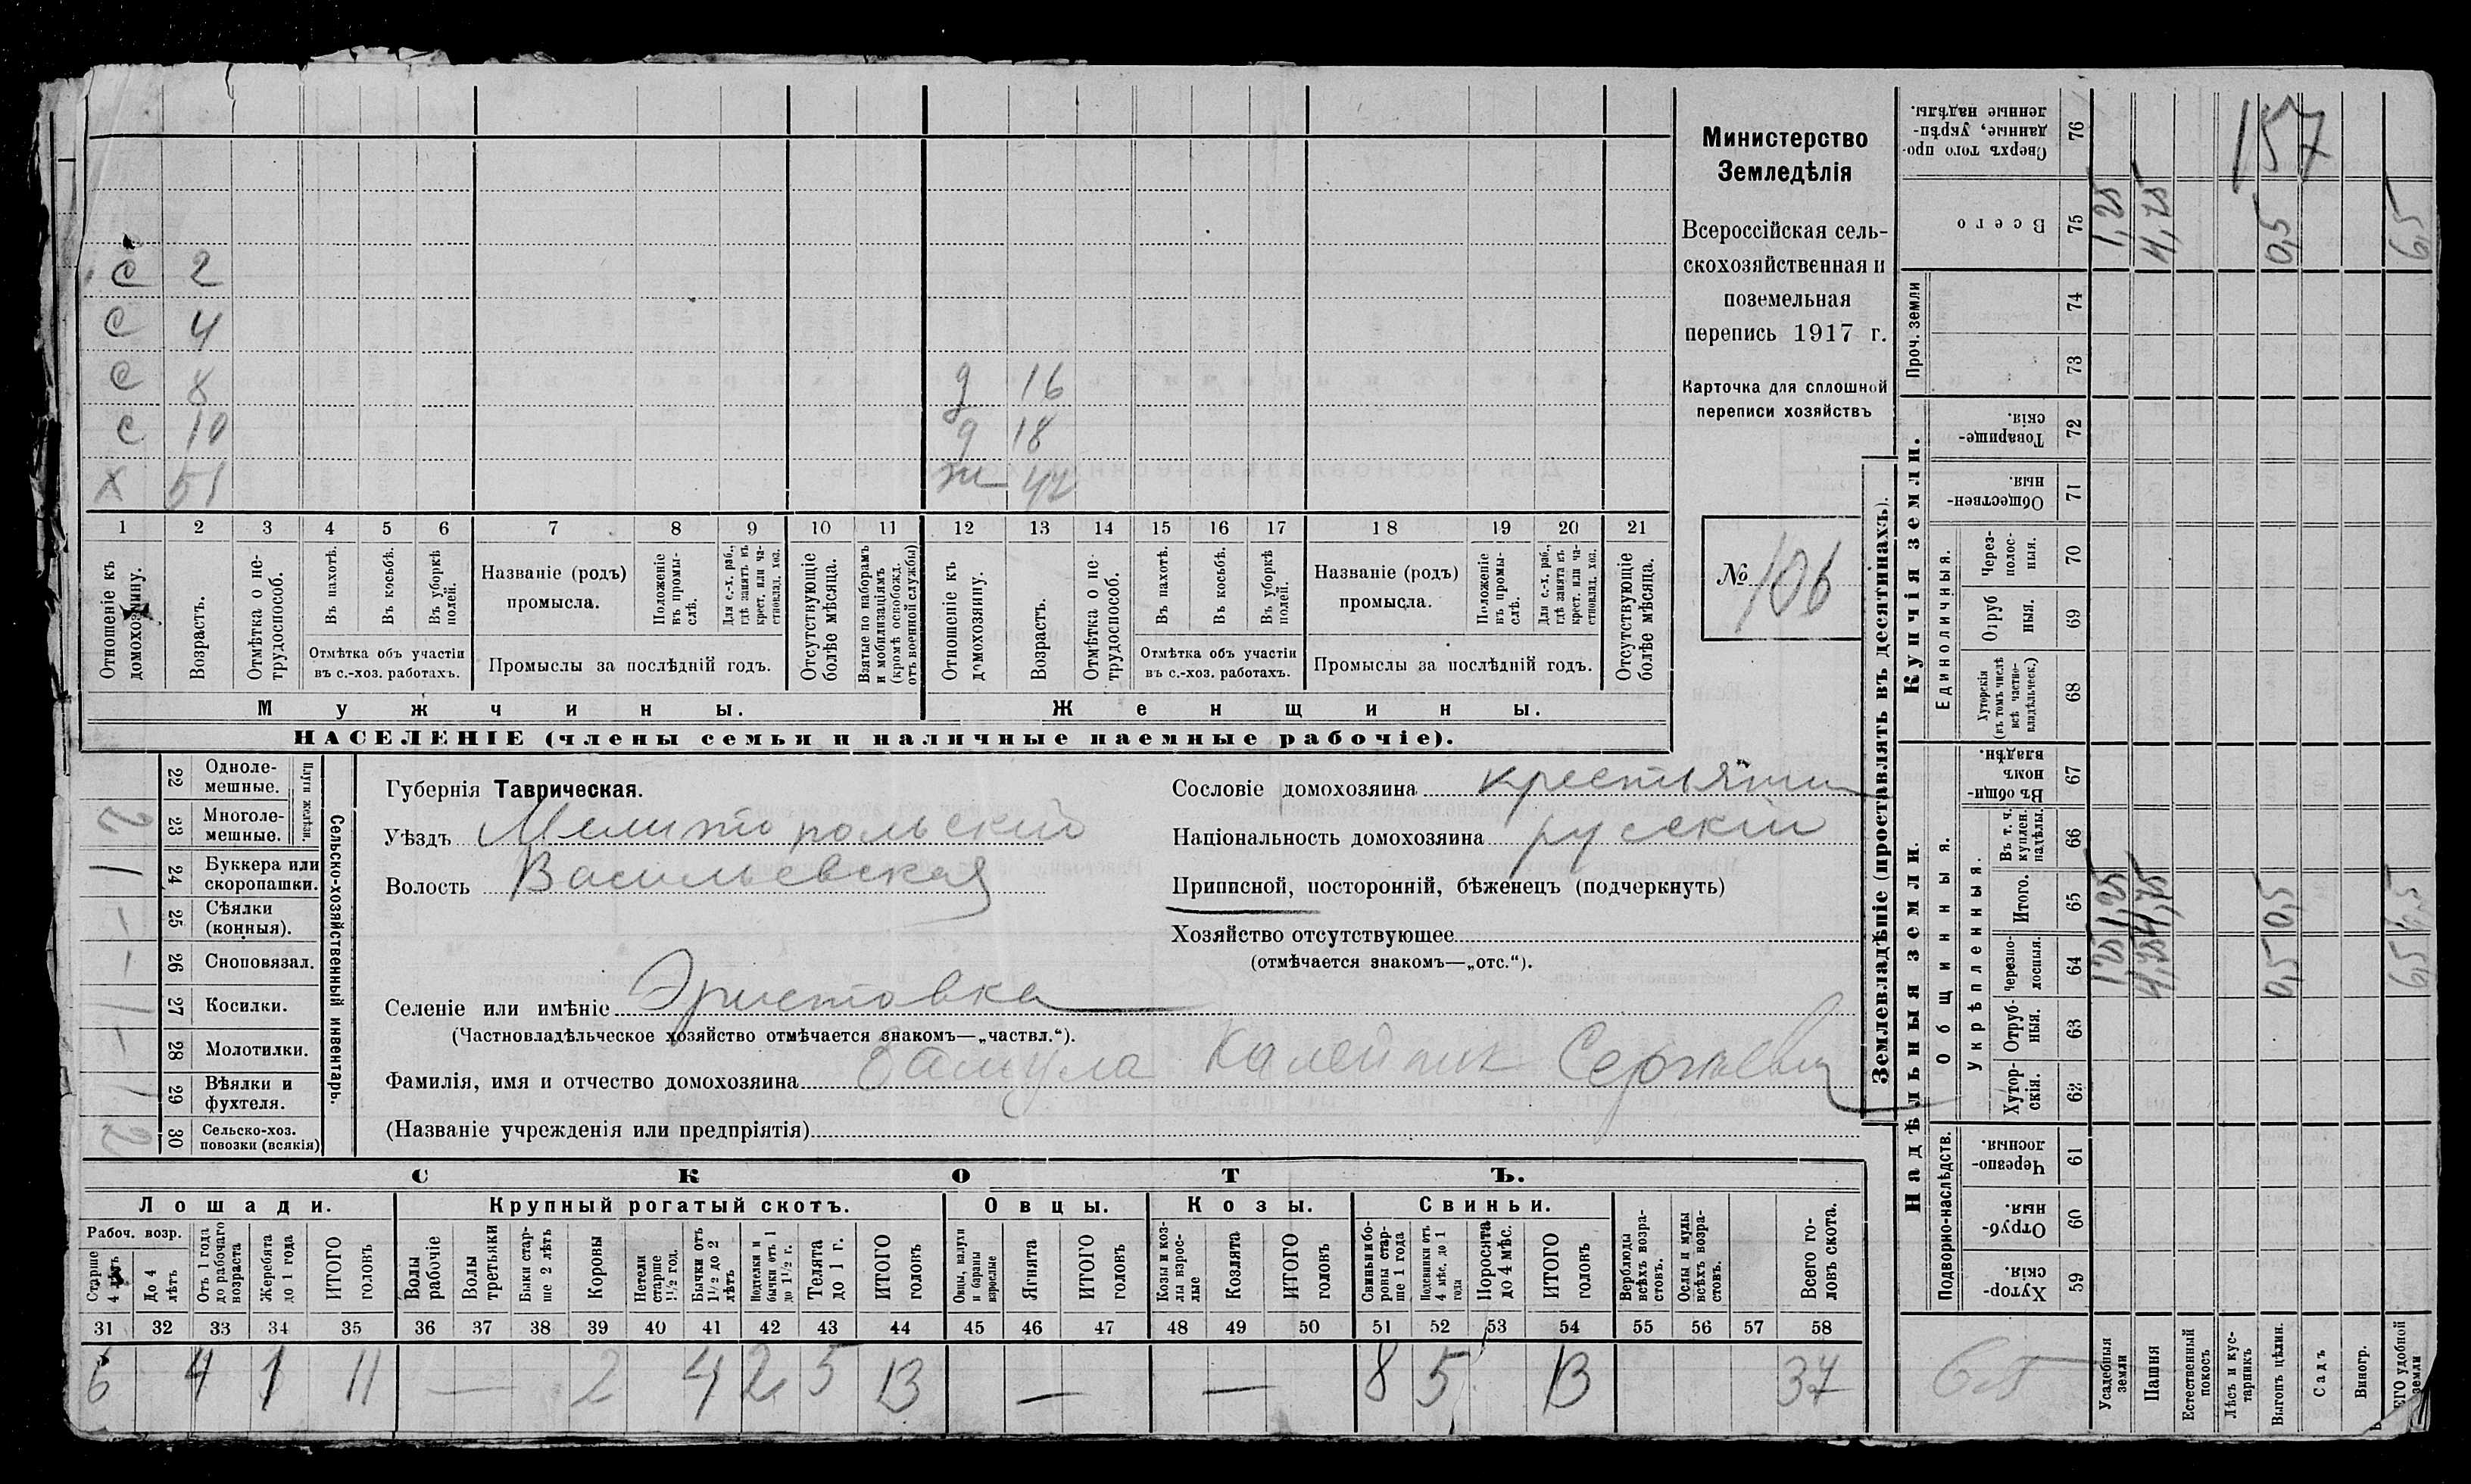 Министерство
Земледѣлія
Всероссійская сель-
скохозяйственная и
поземельная
перепись 1917 г.
Карточка для сплошной
переписи хозяйствъ
№ 106
157
С 2
С 4
С 8 д 16
С 10 д 18
Х 51 ж 42
1 2 3 4 5 6 7 8 9 10 11 12 13 14 15 16 17 18 19 20 21
Отношеніе къ домохозяину.
Возрастъ.
Отмѣтка о не-трудоспособ.
Въ пахотѣ.
Въ косьбѣ.
Въ уборкѣ полей.
Отмѣтка объ участіи
въ с.-хоз. работахъ.
Названіе (родъ)
промысла.
Положеніе въ промы-слѣ.
Для с.-х. раб., гдѣ занятъ въ крест. или ча-стновлад. хоз.
Промыслы за послѣдній годъ.
Отсутствующіе болѣе мѣсяца.
Взятые по наборамъ и мобилизаціямъ (кромѣ освобожд. отъ военной службы)
Отношеніе къ домохозяину.
Возрастъ.
Отмѣтка о не-трудоспособ.
Въ пахотѣ.
Въ косьбѣ.
Въ уборкѣ полей.
Отмѣтка объ участіи
въ с.-хоз. работахъ.
Названіе (родъ)
промысла.
Положеніе въ промы-слѣ.
Для с.-х. раб., гдѣ занята въ крест. или ча-стновлад. хоз.
Промыслы за послѣдній годъ.
Отсутствующіе болѣе мѣсяца.
Мужчины. Женщины.
НАСЕЛЕНІЕ (члены семьи и наличные наемные рабочіе).
Сельско-хозяйственный инвентарь.
Плуги желѣзн.
22 Одноле-мешные.
2 23 Многоле-мешные.
1 24 Буккера или скоропашки.
– 25 Сѣялки (конныя).
– 26 Сноповязал.
1 27 Косилки.
– 28 Молотилки.
1 29 Вѣялки и фухтеля.
2 30 Сельско-хоз. повозки (всякія)
Губернія Таврическая.
Уѣздъ Мелитопольский
Волость Васильевская
Сословіе домохозяина крестьянин
Національность домохозяина русский
Приписной, посторонній, бѣженецъ (подчеркнуть)
Хозяйство отсутствующее
(отмѣчается знакомъ—„отс.“).
Селеніе или имѣніе Эристовка
(Частновладѣльческое хозяйство отмѣчается знакомъ—„частвл.“).
Фамилія, имя и отчество домохозяина Сергѣевич
(Названіе учрежденія или предпріятія)
СКОТЪ.
Лошади. Крупный рогатый скотъ. Овцы. Козы. Свиньи.
Рабоч. возр.
Старше 4 лѣтъ
До 4 лѣтъ
Отъ 1 года до рабочаго возраста
Жеребята до 1 года
ИТОГО головъ
Волы рабочіе
Волы третьяки
Быки стар-ше 2 лѣтъ
Коровы
Нетели старше 1½ год.
Бычки отъ 1½ до 2 лѣтъ
Подтелки и бычки отъ 1 до 1½ г.
Телята до 1 г.
ИТОГО головъ
Овцы, валухи и бараны взрослые
Ягнята
ИТОГО головъ
Козы и коз-лы взрос-лые
Козлята
ИТОГО головъ
Свиньи и бо-ровы стар-ше 1 года
Подсвинки отъ 4 мѣс. до 1 года
Поросята до 4 мѣс.
ИТОГО головъ
Верблюды всѣхъ возра-стовъ.
Ослы и мулы всѣхъ возра-стовъ.
Всего го-ловъ скота.
31 32 33 34 35 36 37 38 39 40 41 42 43 44 45 46 47 48 49 50 51 52 53 54 55 56 57 58
6 4 1 11 — 2 4 2 5 13 — — 8 5 13 37
Землевладѣніе (проставлять въ десятинахъ).
Надѣльныя земли. Купчія земли. Проч. земли
Подворно-наслѣдств.
Общинныя.
Укрѣпленныя.
Единоличныя.
Хутор-скія. 59
Отруб-ныя. 60
Черезпо-лосныя. 61
Хутор-скія. 62
Отруб-ныя. 63
Черезпо-лосныя. 64
Итого. 65
Въ т. ч. куплен. надѣлы. 66
Въ общи-номъ владѣн. 67
Хуторскія (въ томъ числѣ всѣ частно-владѣльческ.) 68
Отруб ныя. 69
Через-полос-ныя. 70
Обществен-ныя. 71
Товарище-скія. 72
73
74
Всего 75
Сверхъ того про-данные, укрѣп-ленные надѣлы. 76
Усадебныя земли 1,25 1,25 1,25
Пашня 4,75 4,75
Естественный покосъ
Лѣсъ и кус-тарникъ
Выгонъ цѣлин. 0,5 0,5 0,5
Садъ
Виногр.
ЕГО удобной земли 6,5 6,5 6,5